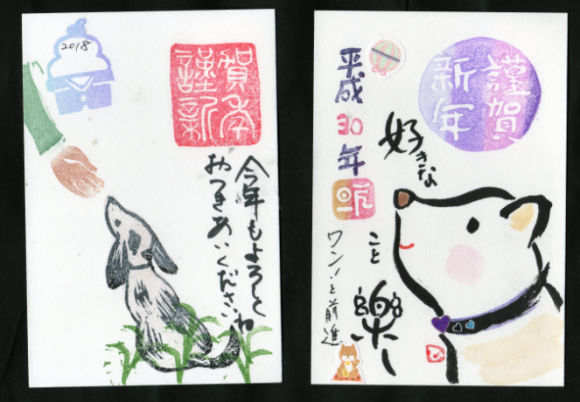 2018
謹賀
新年
今年もよろしく
おつきあいくださいね
謹賀
新年
平成30年
好きな
こと
楽し
ワン〳〵と前進